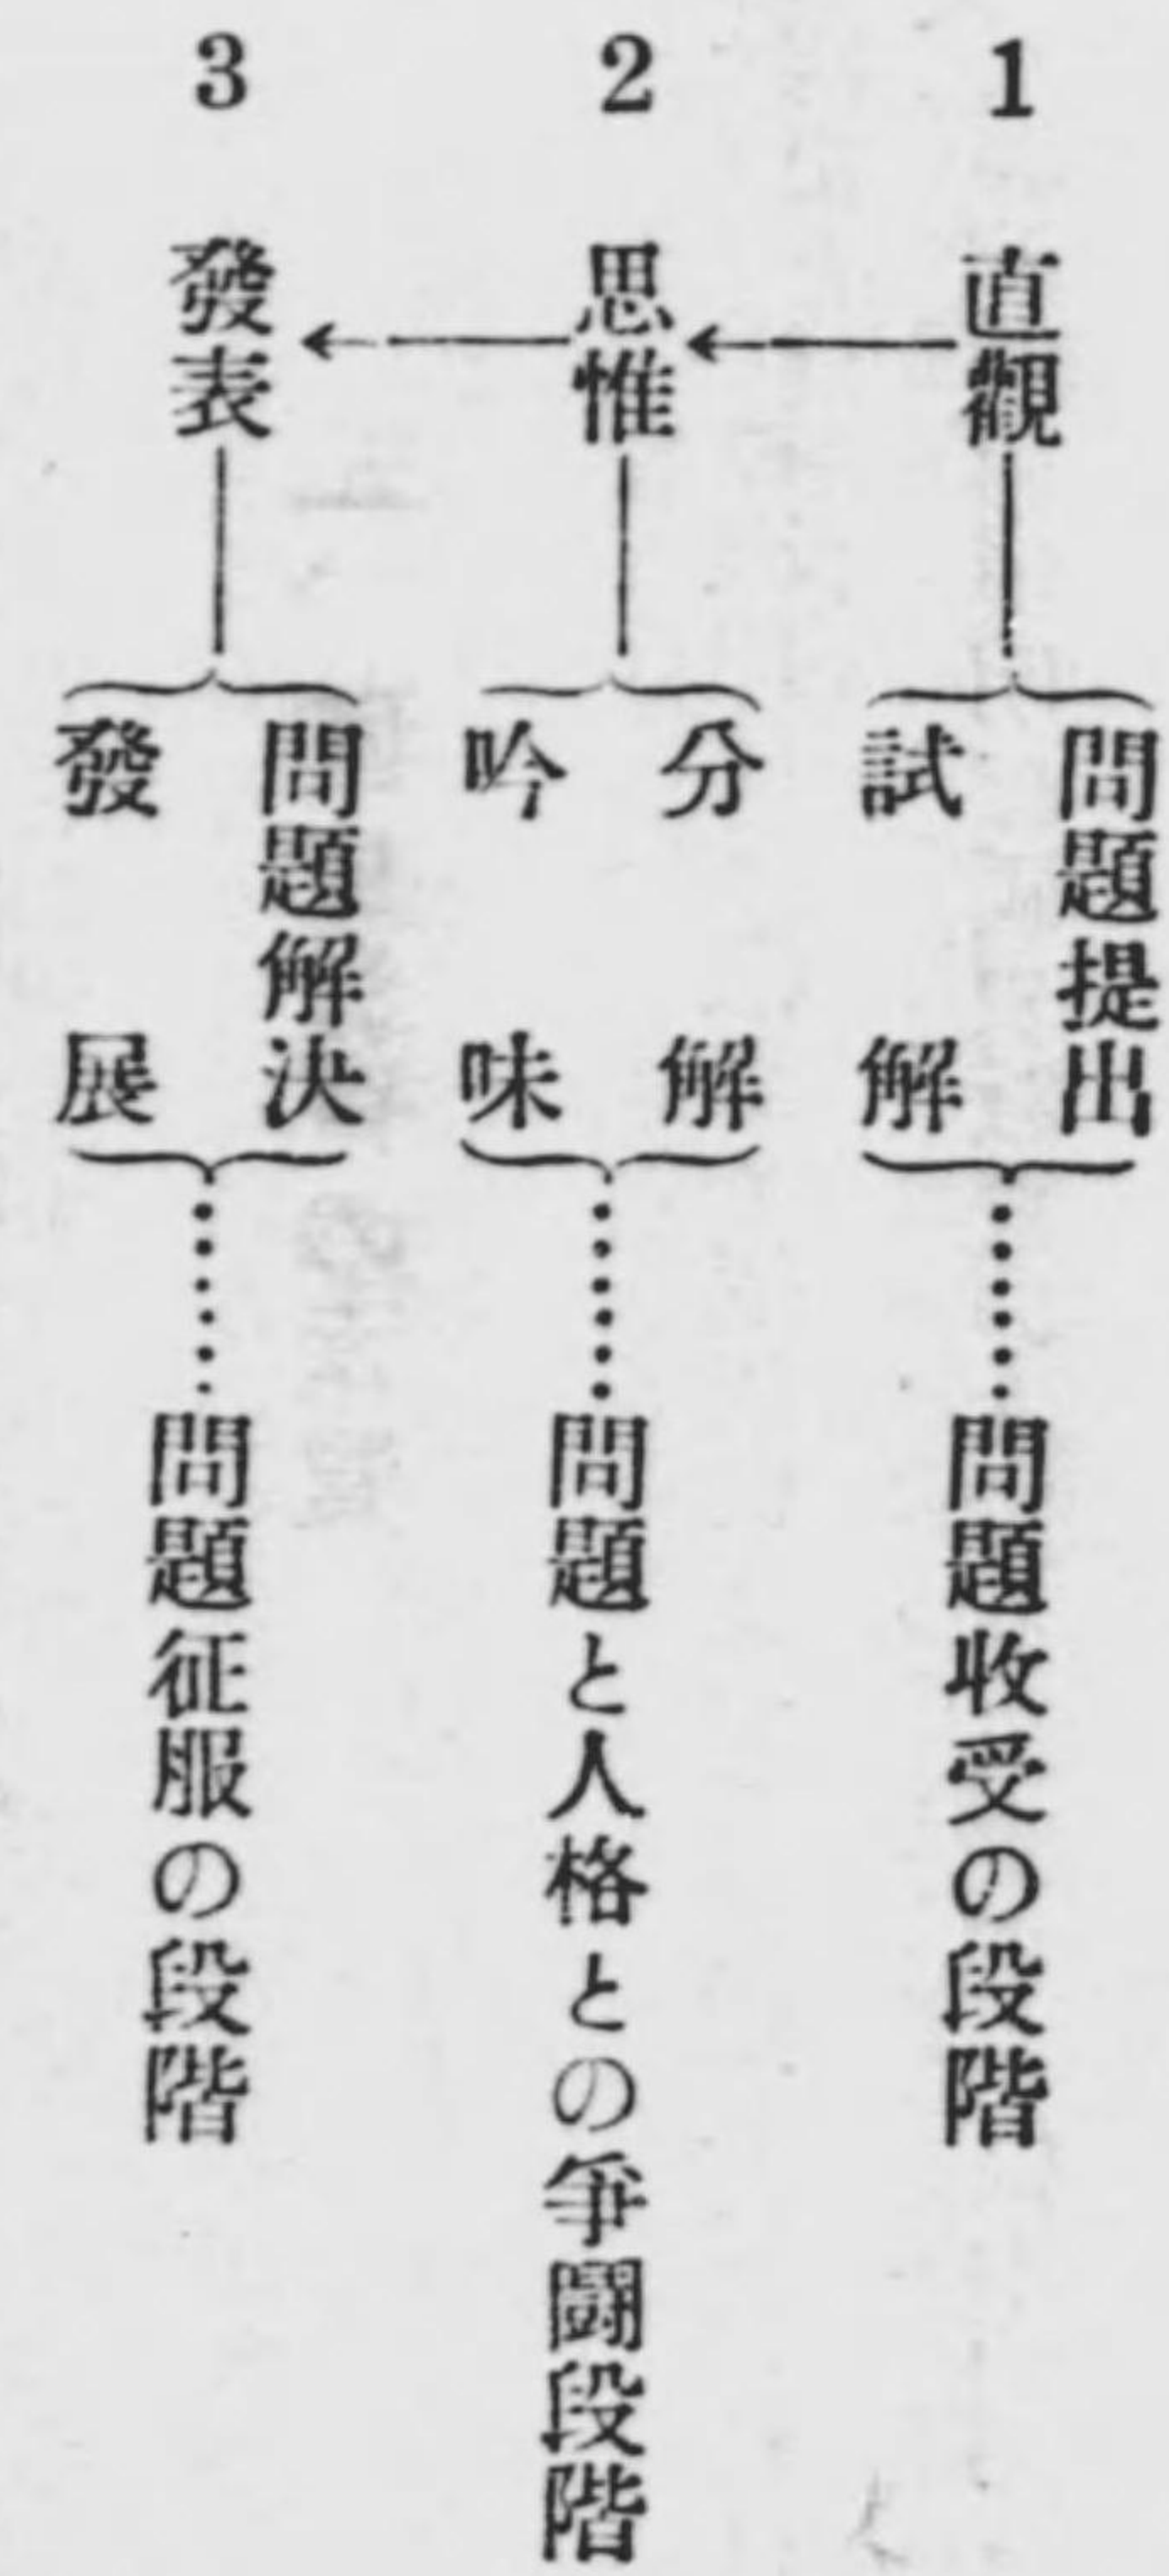 1
直觀
問題提出
試解
問題收受の段階
2
思惟
分解
吟味
問題と人格との爭闘段階
3
發表
問題解決
發展
問題征服の段階